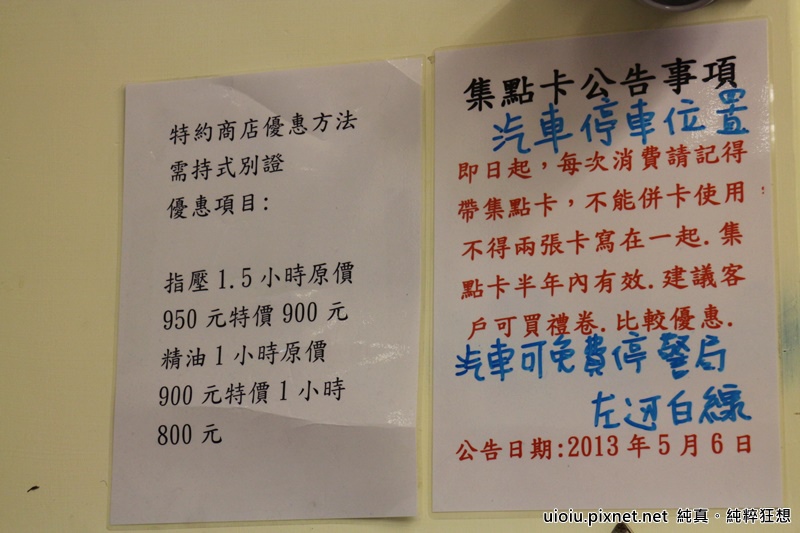 特約商店優惠方法
需持式別證
優惠項目:
指壓1.5小時原價
950元特價900元
精油1小時原價
900元特價1小時
800元
集點卡公告事項
汽車停車位置
即日起，每次消費請記得
帶集點卡，不能併卡使用，
不得兩張卡寫在一起.集
點卡半年內有效.建議客
戶可買禮卷.比較優惠.
汽車可免費停警局
左边白線
公告日期:2013年5月6日
uioiu.pixnet.net 純真。純粹狂想